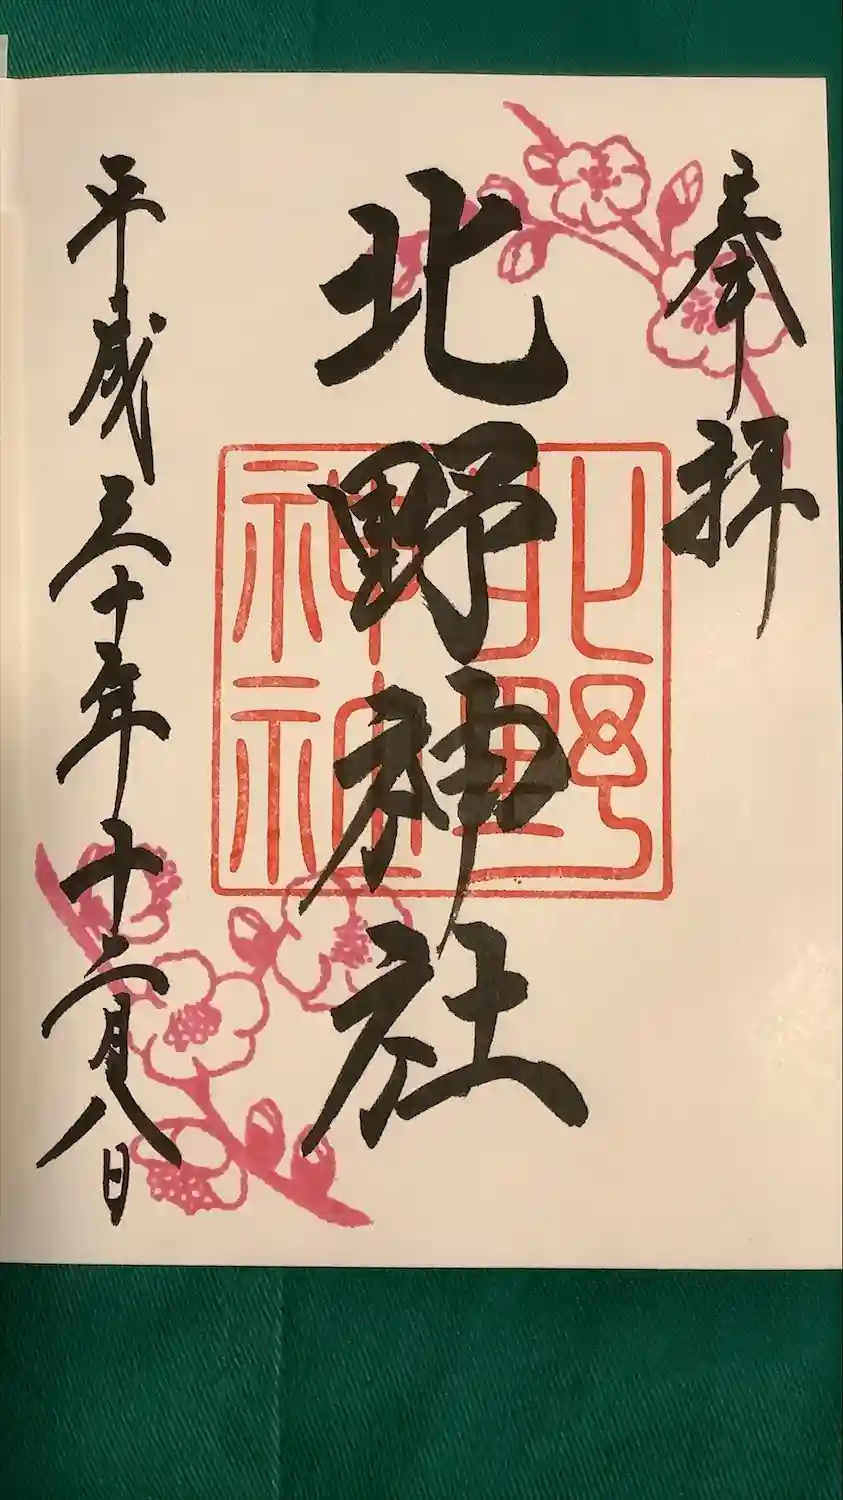 奉拝
北野神社
北野神社
平成三十年十二月八日